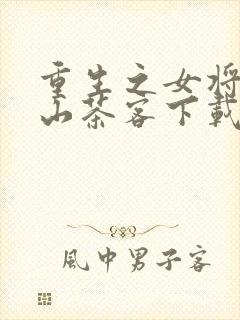 重生之女将
山茶客下载
風中男子客